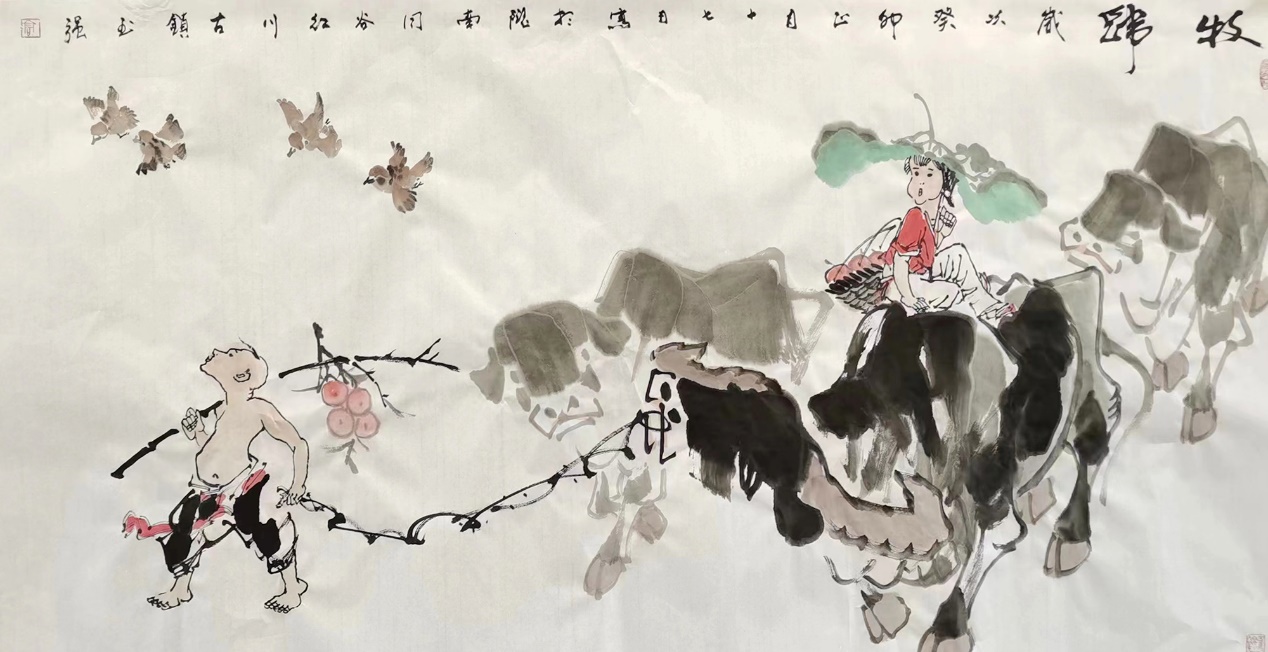 牧歸 歲次癸卯正月十七日寫於隴南同谷紅川古鎮玉强